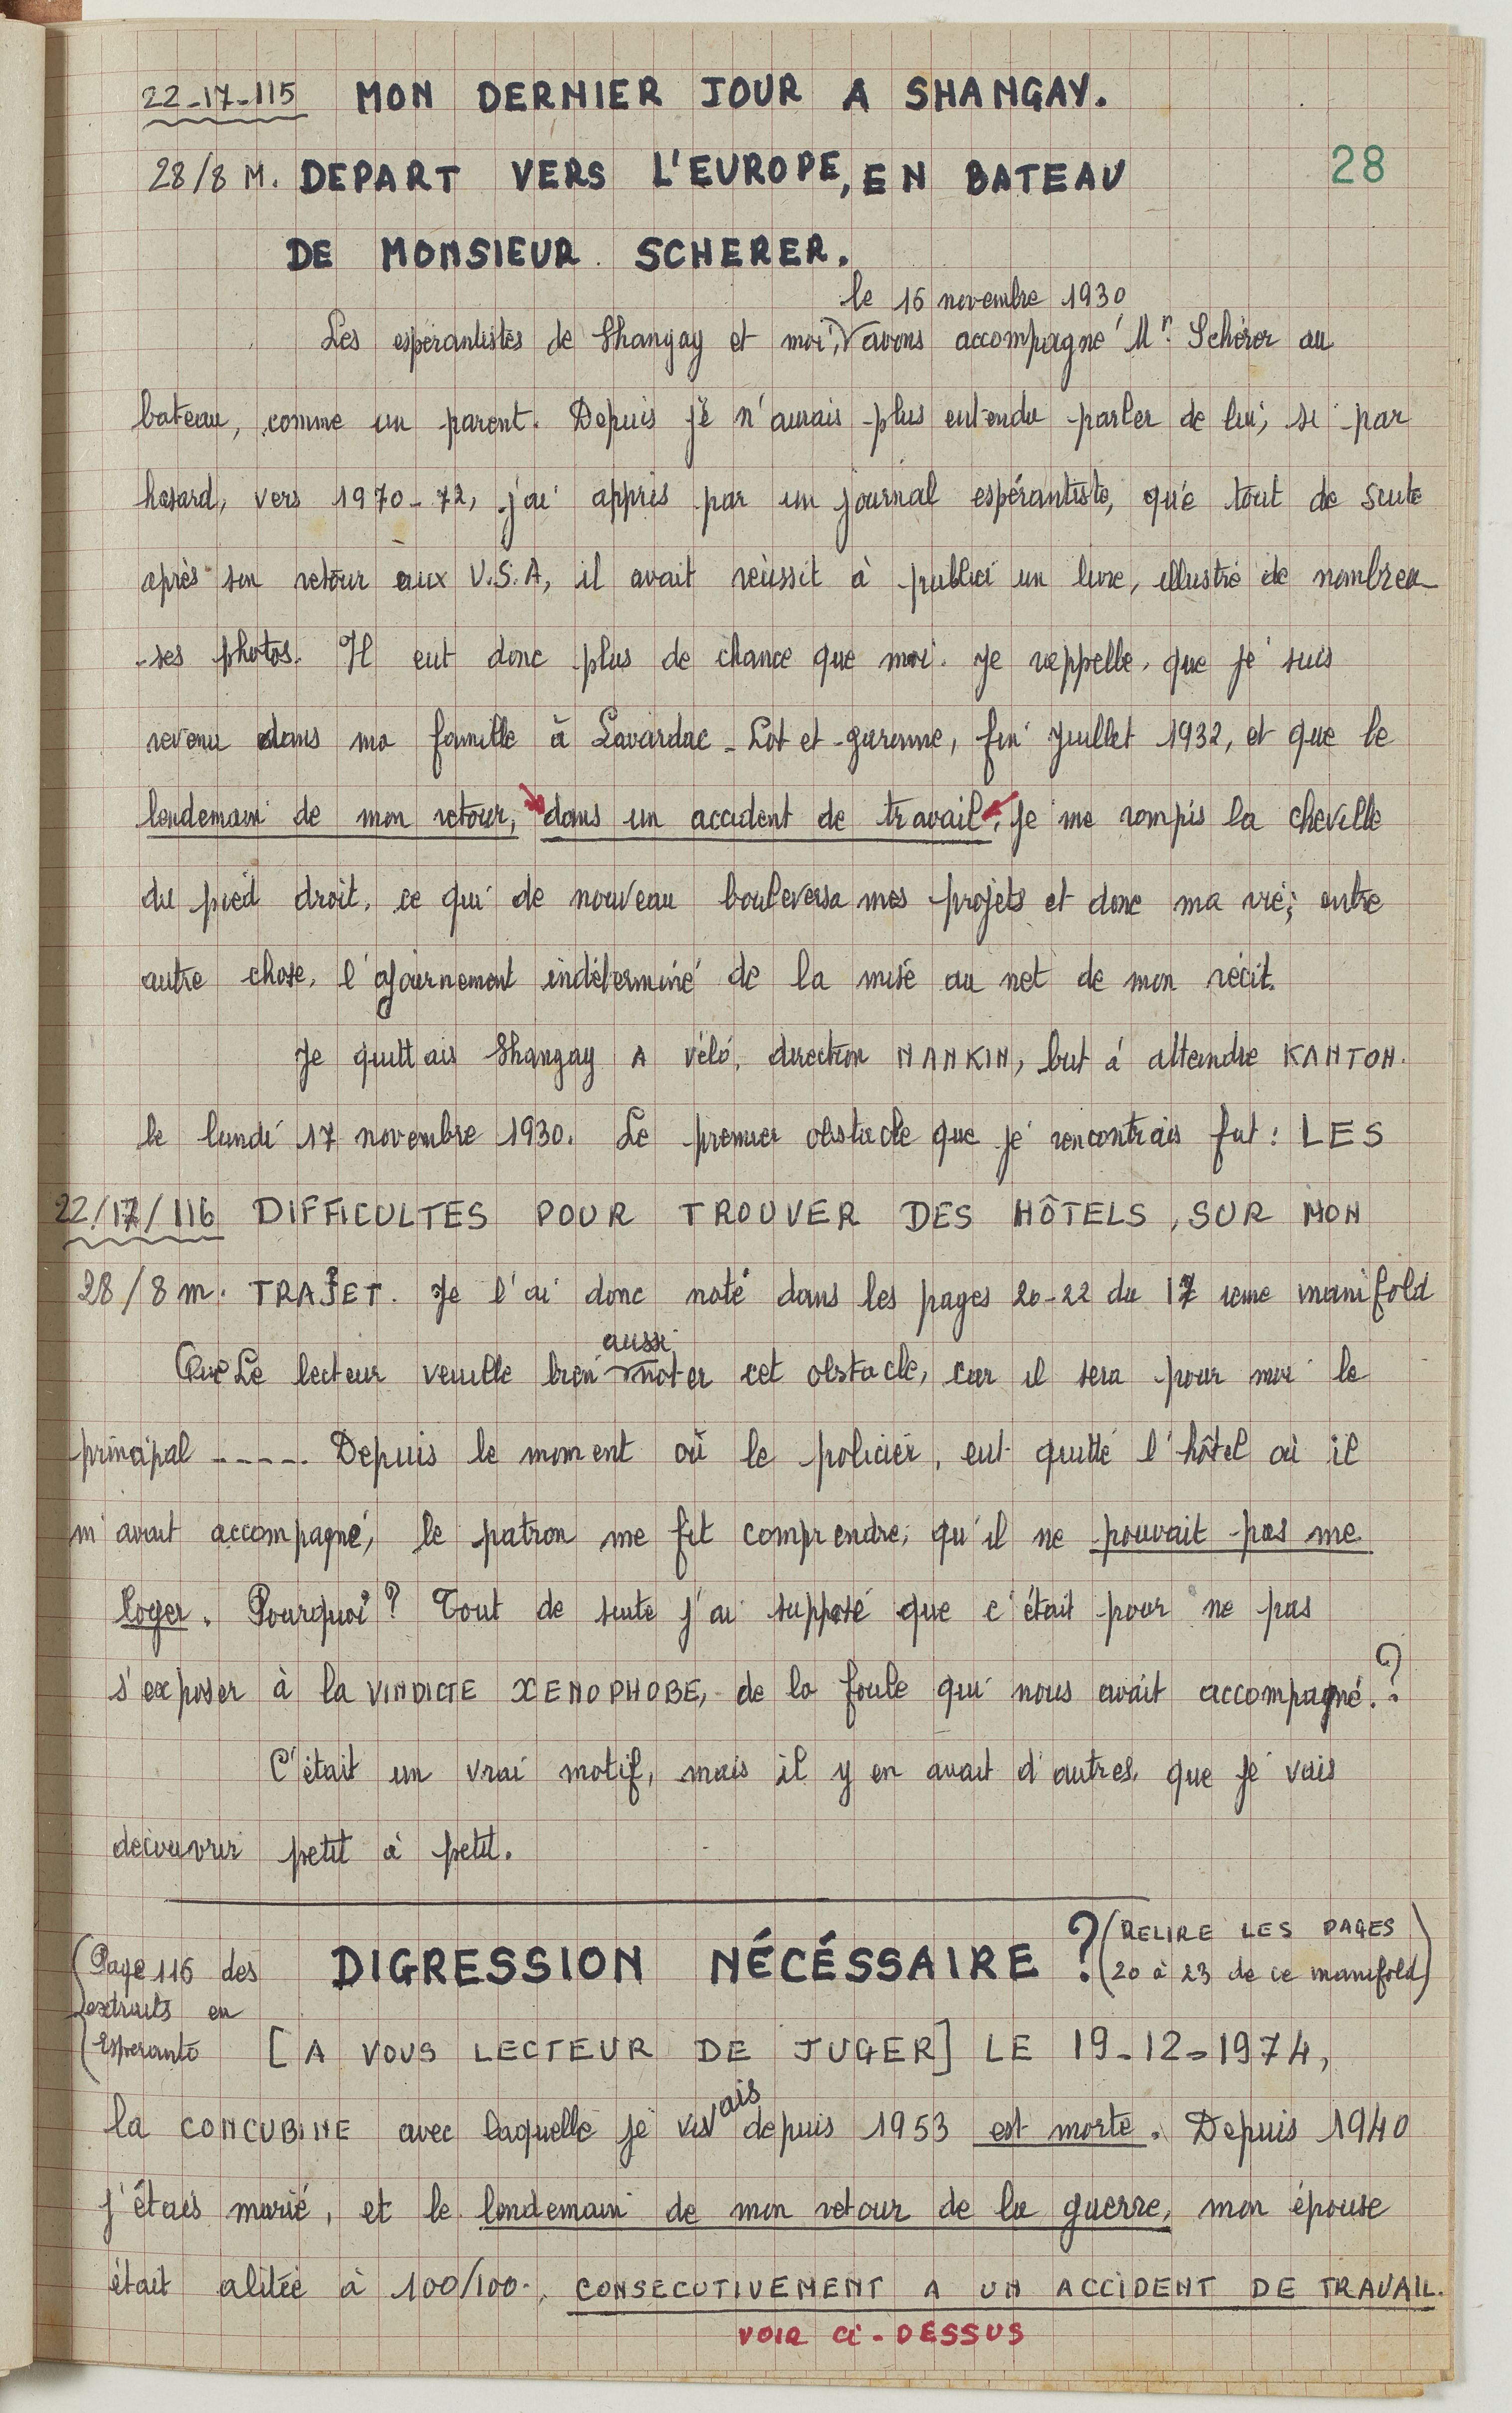 22-17-115 MON DERNIER JOUR A SHANGAY.
28/8 M. DEPART VERS L'EUROPE, EN BATEAU
28
DE MONSIEUR SCHERER.
le 16 novembre 1930
Les espérantistes de Shangay et moi, avons accompagné Mr. Schérer au
bateau, comme un parent. Depuis je n'aurais plus entendu parler de lui, si par
hasard, vers 1970-72, j'ai appris par un journal espérantiste, que tout de suite
après son retour aux U.S.A, il avait réussit à publier un livre, illustré de nombreu-
-ses photos. Il eut donc plus de chance que moi. Je rappelle, que je suis
revenu dans ma famille à Lavardac - Lot et - garonne, fin Juillet 1932, et que le
lendemain de mon retour, dans un accident de travail, Je me rompis la cheville
du pied droit, ce qui de nouveau bouleversa mes projets et donc ma vie; entre
autre chose, l'ajournement indéterminé de la mise au net de mon récit.
Je quittais Shangay A vélo, direction NANKIN, but à atteindre KANTON.
le lundi 17 novembre 1930. Le premier obstacle que je rencontrais fut : LES
22/17/116 DIFFICULTES POUR TROUVER DES HÔTELS, SUR MON
28/8 m. TRAJET. Je l'ai donc noté dans les pages 20-22 du 17 ieme manifold
aussi
Que Le lecteur veuille bien noter cet obstacle, car il sera pour moi le
principal ----- Depuis le moment où le policier, eut quitté l'hôtel où il
m'avait accompagné, le patron me fit comprendre, qu'il ne pouvait pas me
loger. Pourquoi ? Tout de suite j'ai supposé que c'était pour ne pas
s'exposer à la VINDICTE XENOPHOBE, de la foule qui nous avait accompagné. ?
C'était un vrai motif, mais il y en avait d'autres, que je vais
découvrir petit à petit.
DIGRESSION NÉCÉSSAIRE ? (RELIRE LES PAGES
20 à 23 de ce manifold)
(Page 116 des
extraits en
Esperanto
[A VOUS LECTEUR DE JUGER] LE 19-12-1974,
la CONCUBINE avec laquelle je vivais depuis 1953 est morte. Depuis 1940
j'étais marié, et le lendemain de mon retour de la guerre, mon épouse
était alitée à 100/100., CONSECUTIVEMENT A UN ACCIDENT DE TRAVAIL.
VOIR CI-DESSUS